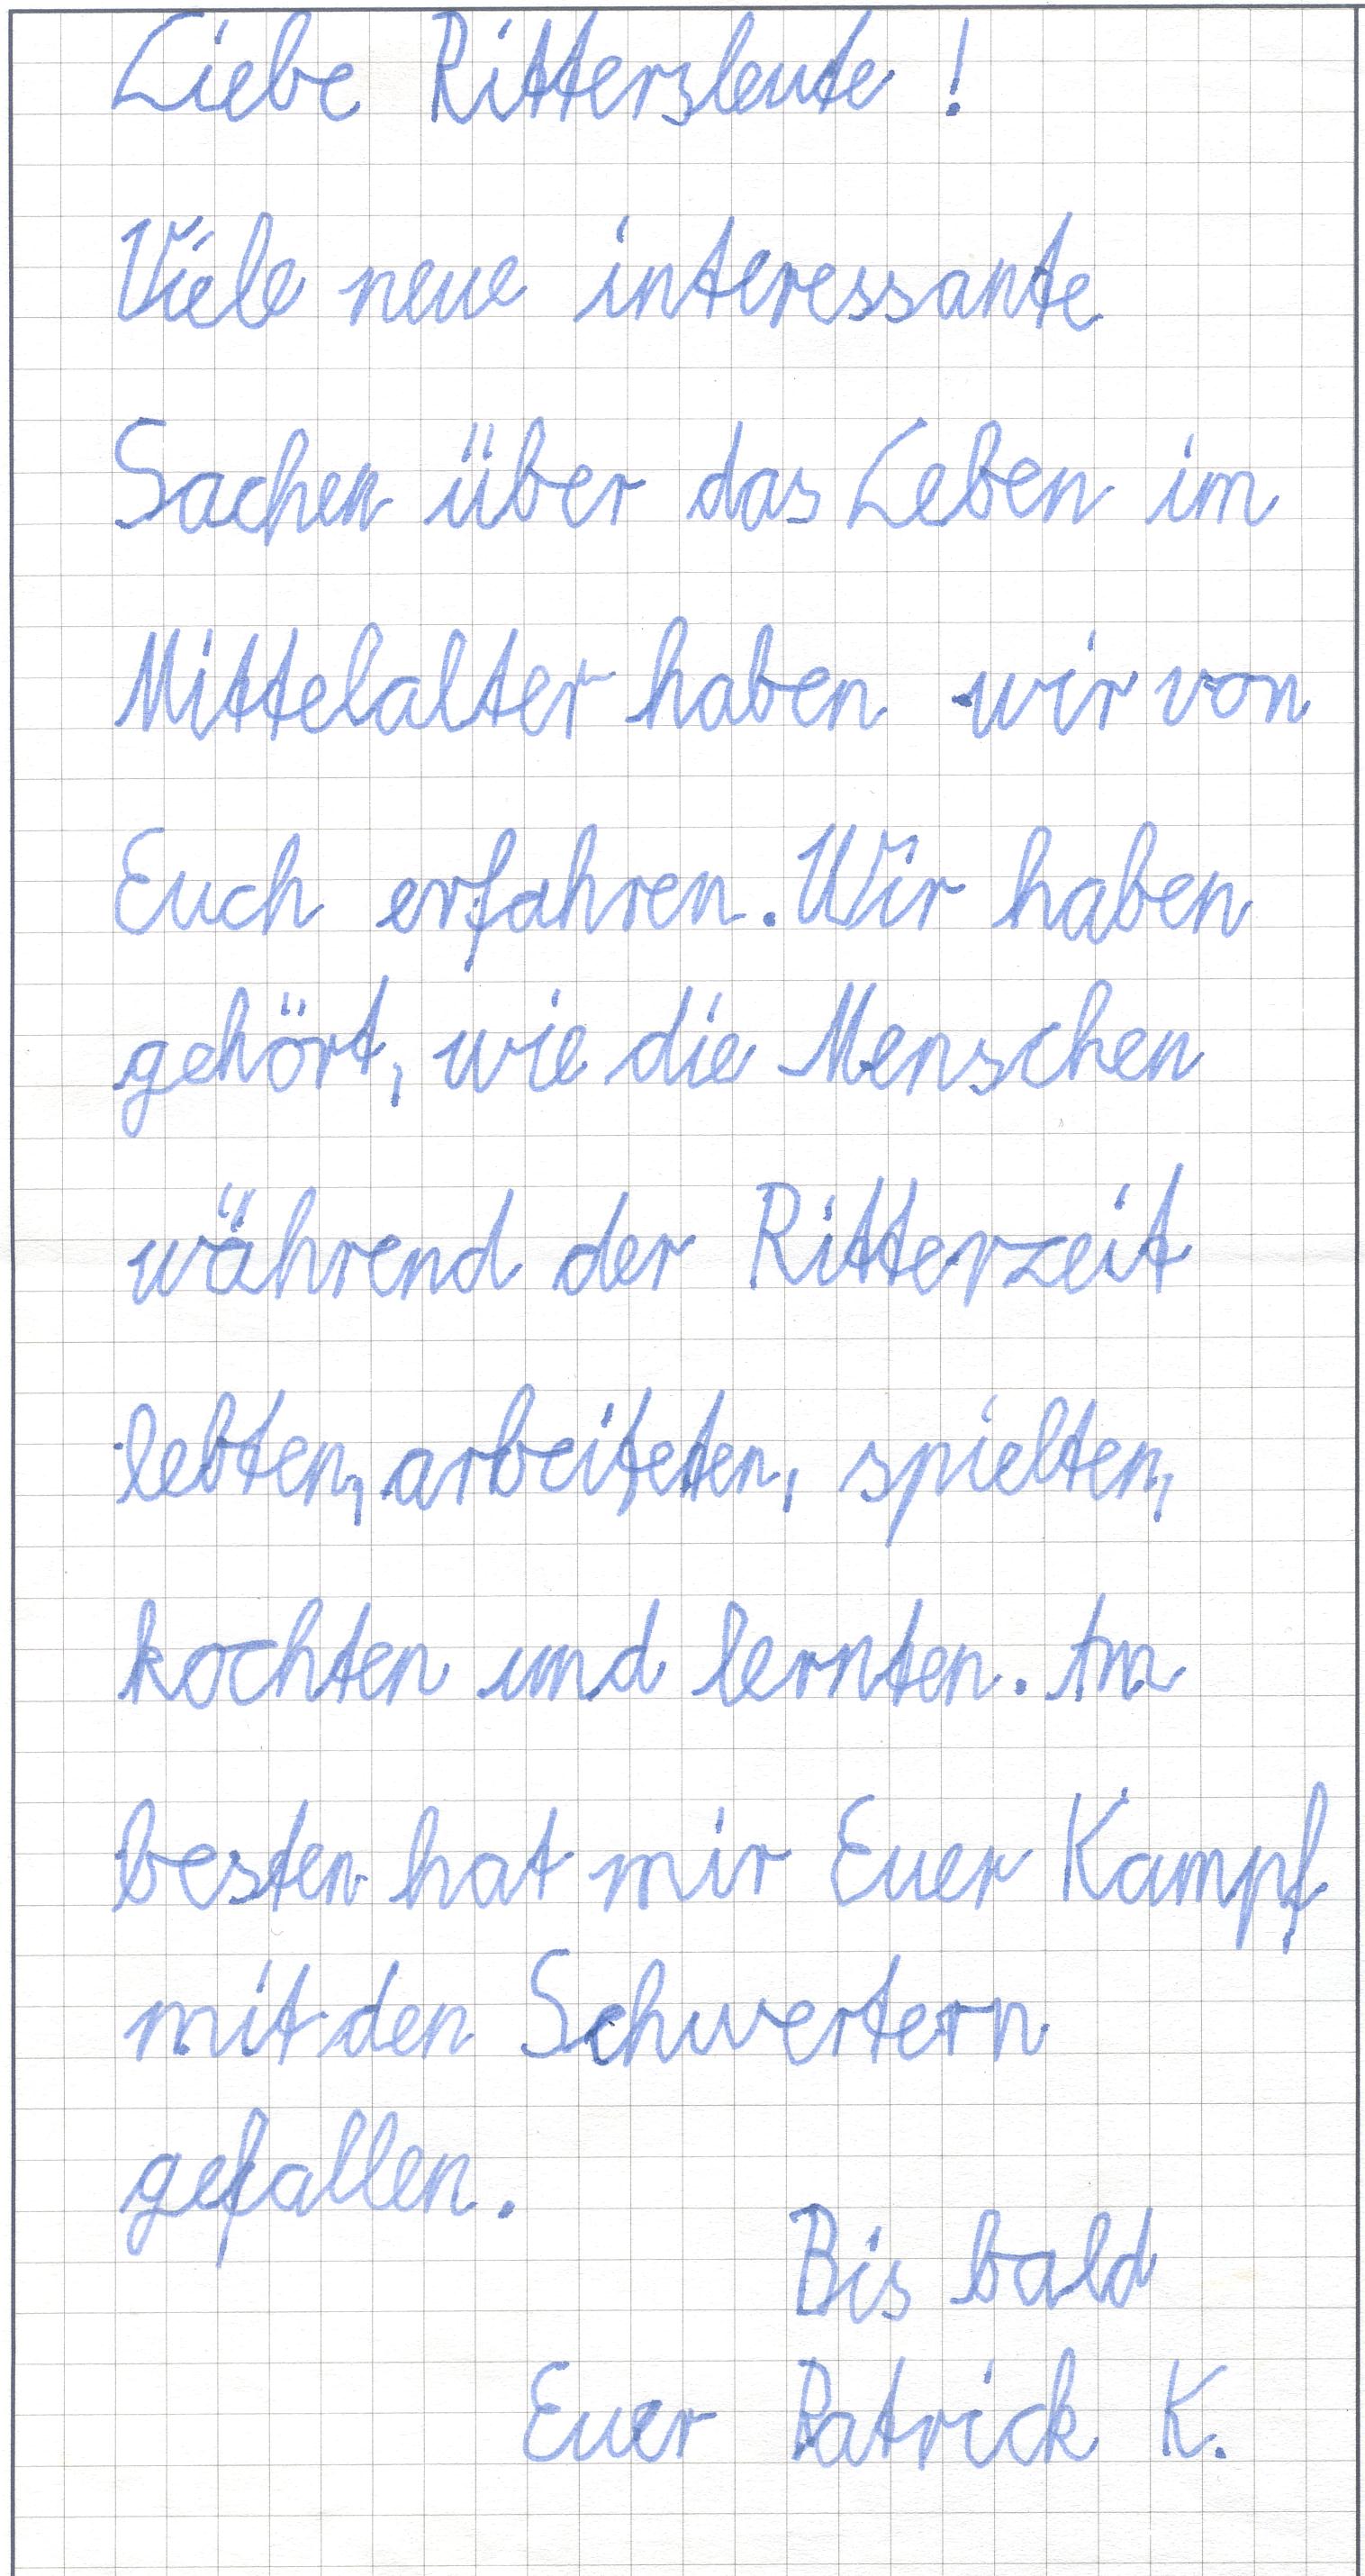 Liebe Rittersleute !
Viele neue interessante
Sachen über das Leben im
Mittelalter haben wir von
Euch erfahren. Wir haben
gehört, wie die Menschen
während der Ritterzeit
lebten, arbeiteten, spielten,
kochten und lernten. Am
besten hat mir Euer Kampf
mit den Schwertern
gefallen.
Bis bald
Euer Patrick K.